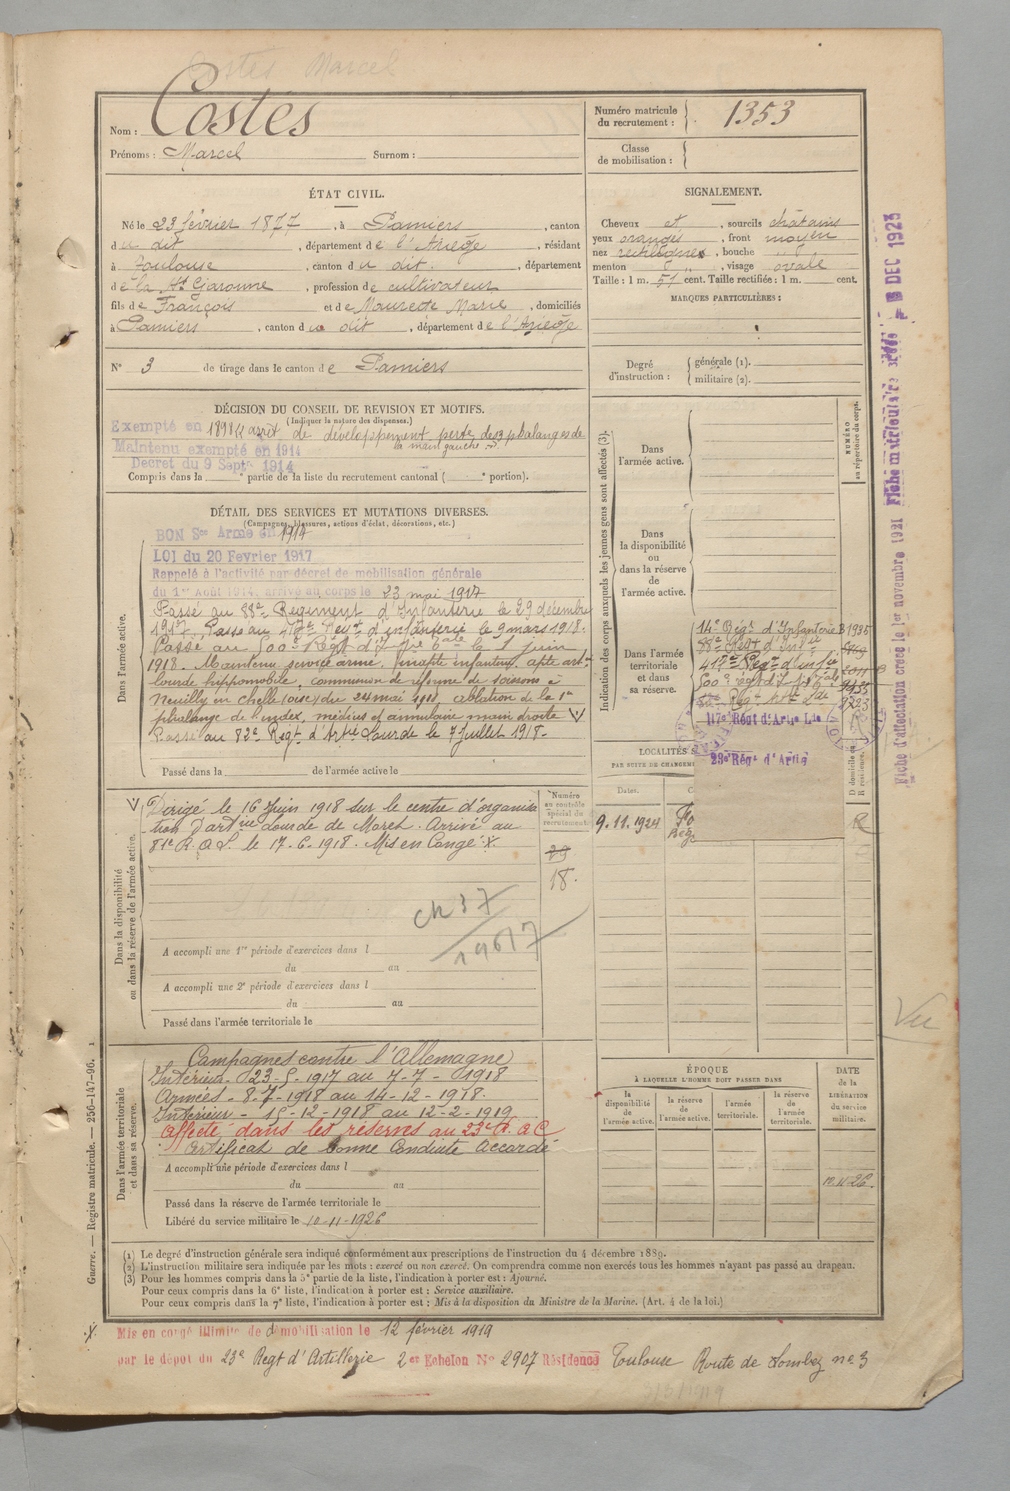 Costes Marcel
Nom : Costes
Prénoms : Marcel Surnom :
Numéro matricule du recrutement : 1353
Classe de mobilisation :
ÉTAT CIVIL.
Né le 23 février 1877, à Pamiers, canton
du dit, département de l'Ariège, résidant
à Toulouse, canton du dit, département
de la Hte Garonne, profession de cultivateur
fils de François et de Maurette Marie, domiciliés
à Pamiers, canton du dit, département de l'Ariège
N° 3 de tirage dans le canton de Pamiers
SIGNALEMENT.
Cheveux et, sourcils châtains
yeux oranges, front moyen
nez rectiligne, bouche
menton, visage ovale
Taille : 1 m. 51 cent. Taille rectifiée : 1 m. cent.
MARQUES PARTICULIÈRES :
Degré d'instruction : générale (1). militaire (2).
DÉCISION DU CONSEIL DE REVISION ET MOTIFS.
(Indiquer la nature des dispenses.)
Exempté en 1898 arrêt de développement perte des 3 phalanges de
la main gauche
Maintenu exempté en 1914
Decret du 9 Septe 1914
Compris dans la e partie de la liste du recrutement cantonal ( e portion).
DÉTAIL DES SERVICES ET MUTATIONS DIVERSES.
(Campagnes, blessures, actions d'éclat, décorations, etc.)
Dans l'armée active.
BON Sce Armé en 1917
LOI du 20 Fevrier 1917
Rappelé à l'activité par décret de mobilisation générale
du 1er Août 1914, arrivé au corps le 23 mai 1917
Passé au 88e Regiment d'Infanterie le 29 décembre
1917. Passé au 417e Regt d'infanterie le 9 mars 1918.
Passé au 500e Régt d'I le 1 juin
1918. Maintenu service armé, inapte infanterie, apte artie
lourde hippomobile, commission de réforme de soissons à
Neuilly en Chelle (oise) du 24 mai 1918 ablation de la 1re
phalange de l'index, médius et annulaire main droite
Passé au 82e Regt d'Artie Lourde le 7 juillet 1918.
Passé dans la de l'armée active le
Indication des corps auxquels les jeunes gens sont affectés (3).
NUMÉRO au répertoire du corps.
Dans l'armée active.
Dans la disponibilité ou dans la réserve de l'armée active.
Dans l'armée territoriale et dans sa réserve.
14e Régt d'Infanterie B 1935
88e Regt d'Infie
417e Regt d'infie
117e Régt d'Artie Lde
23e Régt d'Artie
LOCALITÉS S
PAR SUITE DE CHANGEM
Dates.
D domicile
R résidence.
9.11.1924
R
Dans la disponibilité ou dans la réserve de l'armée active.
Numéro au contrôle spécial du recrutement
29
18.
Dirigé le 16 Juin 1918 sur le centre d'organisa
tion d'artie Lourde de March. Arrivé au
81e R.A.L. le 17-6-1918. Mis en Congé. X.
ch 37
19617
A accompli une 1re période d'exercices dans l
du au
A accompli une 2e période d'exercices dans l
du au
Passé dans l'armée territoriale le
Dans l'armée territoriale et dans sa réserve.
Campagnes contre l'Allemagne
Intérieur. 23-5-1917 au 7-7-1918
Armées. 8-7-1918 au 14-12-1918.
Intérieur - 15-12-1918 au 12-2-1919
Affecté dans les réserves au 23e R.A.C
Certificat de bonne Conduite Accordé
A accompli une période d'exercices dans l
du au
Passé dans la réserve de l'armée territoriale le
Libéré du service militaire le 10-11-1926
ÉPOQUE
À LAQUELLE L'HOMME DOIT PASSER DANS
la disponibilité de l'armée active.
la réserve de l'armée active.
l'armée territoriale.
la réserve de l'armée territoriale.
DATE de la LIBÉRATION du service militaire.
10-11-26.
(1) Le degré d'instruction générale sera indiqué conformément aux prescriptions de l'instruction du 4 décembre 1889.
(2) L'instruction militaire sera indiquée par les mots : exercé ou non exercé. On comprendra comme non exercés tous les hommes n'ayant pas passé au drapeau.
(3) Pour les hommes compris dans la 5e partie de la liste, l'indication à porter est : Ajourné.
Pour ceux compris dans la 6e liste, l'indication à porter est : Service auxiliaire.
Pour ceux compris dans la 7e liste, l'indication à porter est : Mis à la disposition du Ministre de la Marine. (Art. 4 de la loi.)
X. Mis en congé illimité de démobilisation le 12 février 1919
par le dépôt du 23e Regt d'Artillerie 2er Echelon N° 2907 Résidence Toulouse Route de Lombez no 3
Guerre. — Registre matricule. — 256-147-96.
Fiche d'affectation créée le 1er novembre 1921
DEC 1923
Vu